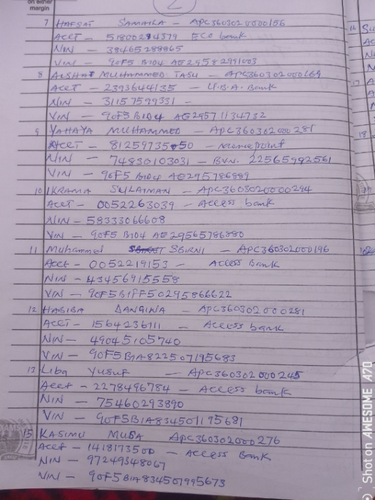 on either
margin
2
7 HAFSAT SAMAILA - APC360302000156
ACCT - ECO bank
NIN - 39465288065
VIN - 90F5 B104
8 MUHAMMED - APC360302000169
ACCT - 2393644135 - U.B.A. Bank
NIN - 31157599331 -
VIN - 90F5B104 AG295711134732
9 YAHAYA MUHAMMED - APC360312000281
ACCT - - moniepoint
NIN - 74830103031 - BVN. 22565992561
VIN - 90F5 B104 AG295786889
10 IKRAMA SULAIMAN - APC360302000294
Acct - 0052263039 - Access bank
NIN - 58333066608
VIN - 90F5 B104 AG29565786880
11 Muhammad SGURNI - APC360302000196
Acct - 0052219153 - Access Bank
NIN - 43456915558
VIN - 90F5B1FF50295866622
12 HABIBA DANGANA - APC360302000281
ACCT - 1564236111 - Access bank
NIN - 49045105740
VIN - 90F5B1A822507195683
13 Liba Yusuf - APC360302000245
Acct - 2278496784 - Access bank
NIN - 75460293890
VIN - 90F5B1A834501195681
15 KASIMU MUSA APC360302000276
Acct - 1418173500 - Access bank
NIN - 97249348067
VIN - 90F5B1A834507995673
Shot on AWESOME A70